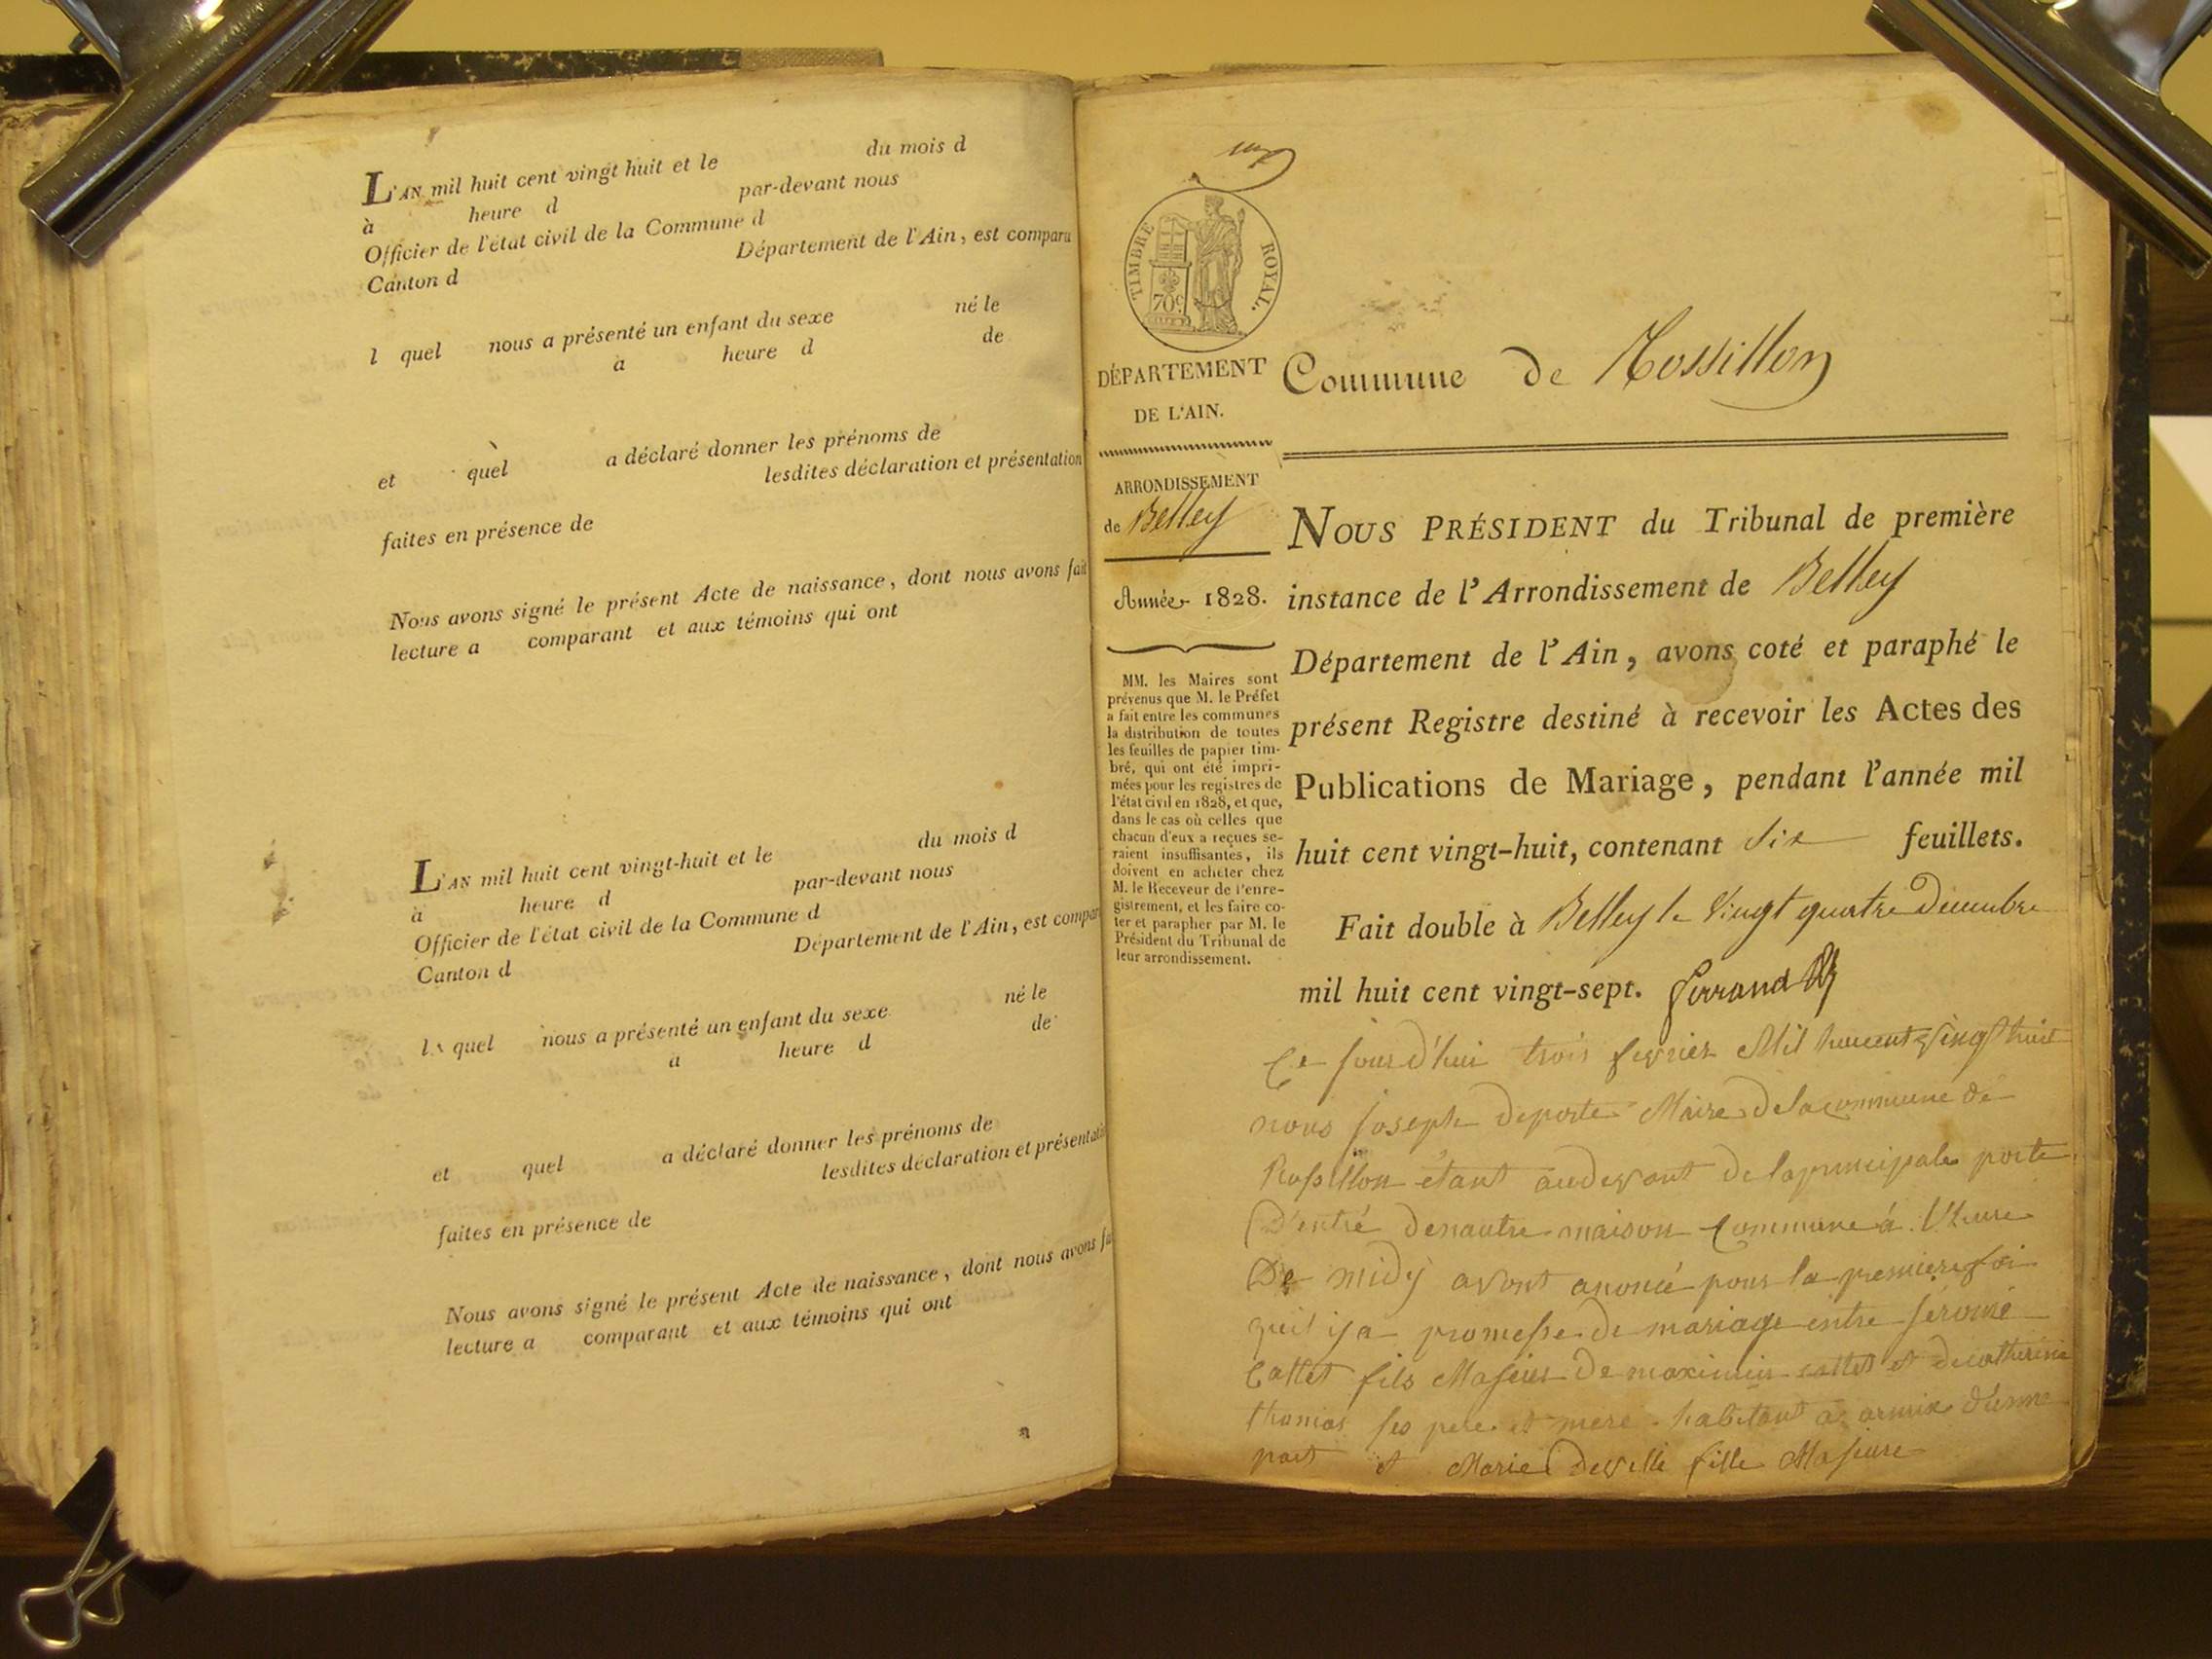 L'AN mil huit cent vingt huit et le du mois d
à heure d par-devant nous
Officier de l'état civil de la Commune d
Canton d Département de l'Ain, est comparu
l quel nous a présenté un enfant du sexe né le
à heure d de
et quel a déclaré donner les prénoms de
lesdites déclaration et présentation
faites en présence de
Nous avons signé le présent Acte de naissance, dont nous avons fait
lecture a comparant et aux témoins qui ont
L'AN mil huit cent vingt-huit et le du mois d
à heure d par-devant nous
Officier de l'état civil de la Commune d
Canton d Département de l'Ain, est compar
l quel nous a présenté un enfant du sexe né le
à heure d de
et quel a déclaré donner les prénoms de
lesdites déclaration et présentati
faites en présence de
Nous avons signé le présent Acte de naissance, dont nous avons fa
lecture a comparant et aux témoins qui ont
TIMBRE ROYAL.
70c.
DÉPARTEMENT
DE L'AIN.
ARRONDISSEMENT
de Belley
Année 1828.
MM. les Maires sont
prévenus que M. le Préfet
a fait entre les communes
la distribution de toutes
les feuilles de papier tim-
bré, qui ont été impri-
mées pour les registres de
l'état civil en 1828, et que,
dans le cas où celles que
chacun d'eux a reçues se-
raient insuffisantes, ils
doivent en acheter chez
M. le Receveur de l'enre-
gistrement, et les faire co-
ter et parapher par M. le
Président du Tribunal de
leur arrondissement.
Commune de Rossillon
NOUS PRÉSIDENT du Tribunal de première
instance de l'Arrondissement de Belley
Département de l'Ain, avons coté et paraphé le
présent Registre destiné à recevoir les Actes des
Publications de Mariage, pendant l'année mil
huit cent vingt-huit, contenant six feuillets.
Fait double à Belley le vingt quatre Decembre
mil huit cent vingt-sept. Ferrand
Ce jourd'hui trois fevrier Mil huicent vingt huit
nous joseph deporte Maire de la commune de
Rossillon étant audevant de la principale porte
D'entré denautre maison Commune á l'heure
De midy avont anoncé pour la premiere foi
qu'il y a promesse de mariage entre jerome
Callet fils Majeur De maximin callet et de catherine
thomas ses pere et mere habitant a armix d'unne
part et Marie deville fille Majeure